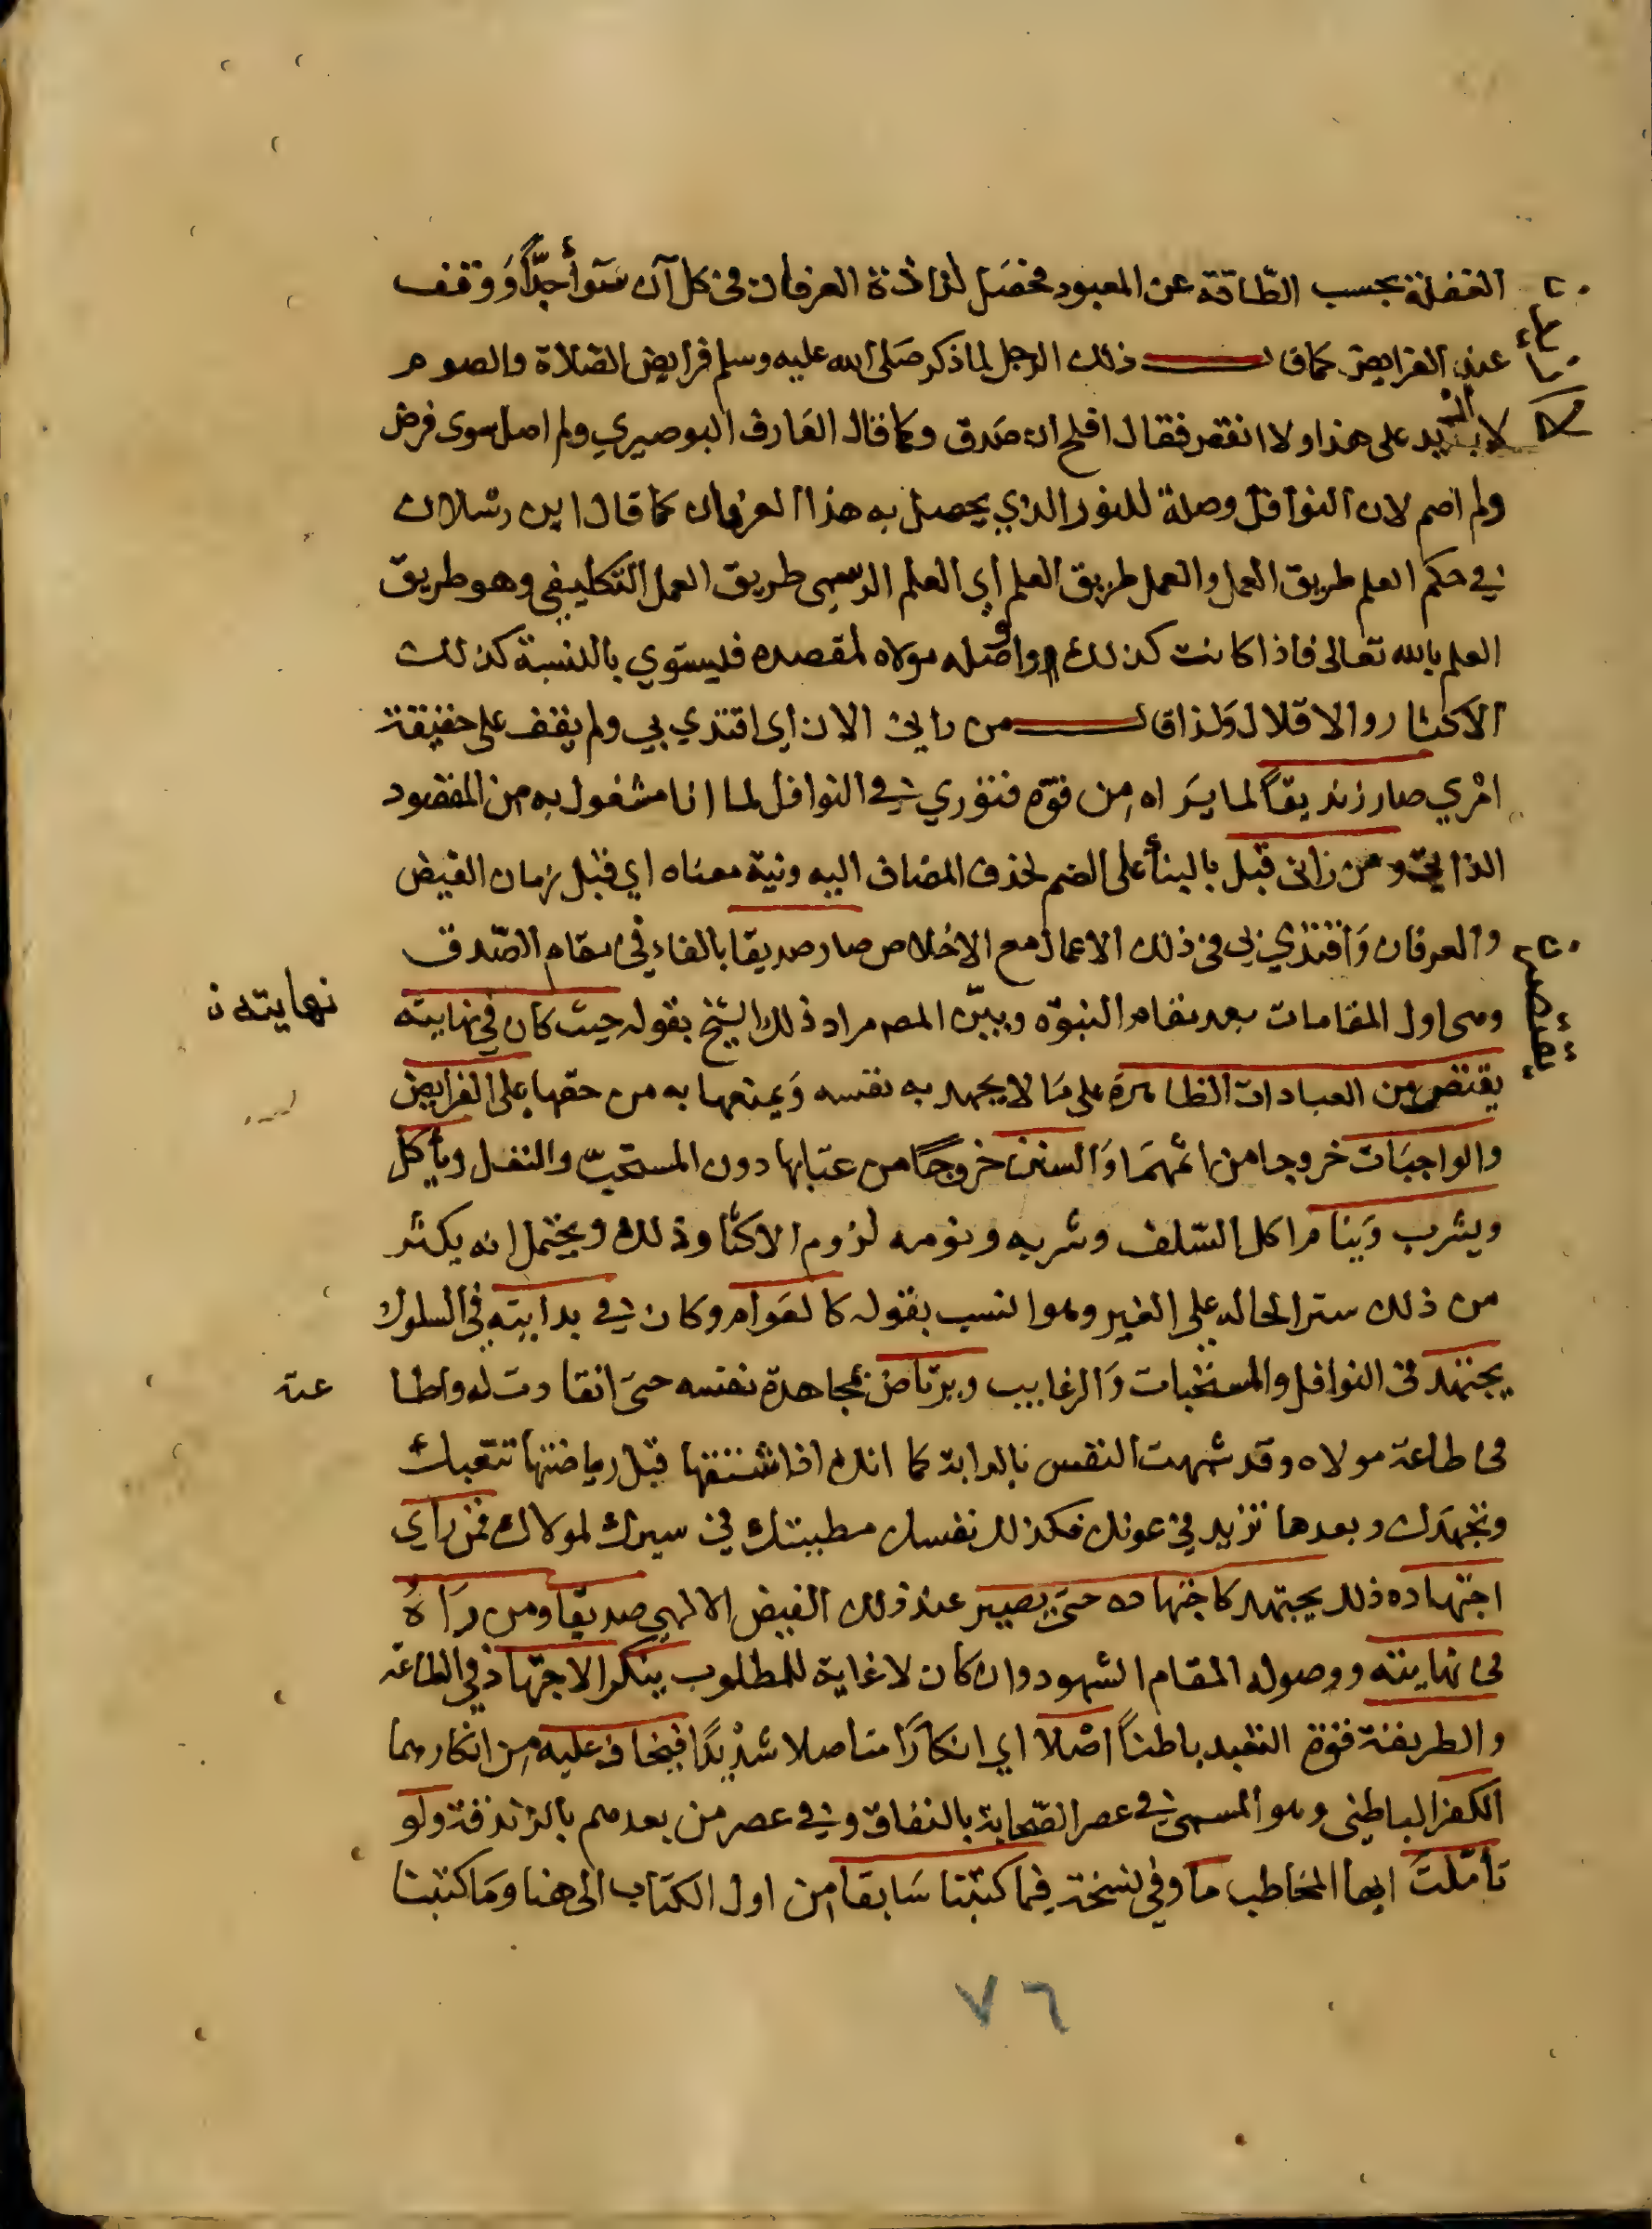 الغفلة بحسب الطاقة عن المعبود فحصل لذاذة العرفان فى كل آن سوأ جدّاً ووقف
عند الفرايض كما قال ذلك الرجل لما ذكر صلى الله عليه وسلم فرايض الصلاة والصوم
لا ازيد على هذا ولا انقص فقال افلح ان صدق وكما قال العارف البوصيري ولم اصل سوى فرض
ولم اصم لان النوافل وصلة للنور الذي يحصل به هذا العرفان كما قال ابن رسلان
في حكم العلم طريق العمل والعمل طريق العلم اي العلم الرسمى طريق العمل التكليفي وهو طريق
العلم بالله تعالى فاذا كانت كذلك واوصله مولاه لمقصده فليستوي بالنسبة كذلك
الاكثار والاقلال ولذا قال من رانى الان اي اقتدي بي ولم يقف على حقيقة
امري صار زنديقاً لما يراه من قوة فتوري في النوافل لما انا مشغول به من المقصود
الذاتي ومن رانى قبل بالبنأ على الضم لحذف المضاف اليه ونية معناه اي قبل زمان الفيض
والعرفان واقتدي بي فى ذلك الاعمال مع الاخلاص صار صديقا بالفاء فى مقام الصدق
وهى اول المقامات بعد مقام النبوة وبيّن المصـ مراد ذلك الشيخ بقوله حيث كان في نهايته
نهايته ن
يقتصر من العبادات الظاهرة على ما لا يجهد به نفسه ويمنعها به من حقها على الفرايض
والواجبات خروجا من اثمهما والسنن خروجاً من عتابها دون المستحبّ والنفل ويأكل
ويشرب وينام اكل السلف وشربه ونومه لزوم الاكثار وذلك ويحتمل انه يكثر
من ذلك ستر الحاله على الغير وهو انسب بقوله كالعوام وكان في بدايته في السلوك
يجتهد فى النوافل والمستحبات والرغايب ويرتاض بمجاهدة نفسه حتى انقادت له واطا
عته
فى طاعة مولاه وقد شبهت النفس بالدابة كما انك اذا شننقها قبل رياضتها تتعبك
وتجهدك وبعدها تزيد في عونك فكذلك نفسك مطيتك في سيرك لمولاك فمن راي
اجتهاده ذلك يجتهد كاجتهاده حتى يصير عند ذلك الفيض الالهي صديقا ومن راه
فى نهايته ووصوله المقام الشهود وان كان لا غاية للمطلوب ينكر الاجتهاد في الطاعة
والطريقة قوة التقيد باطناً اصلا اي انكاراً متاصلا شديداً فيخاف عليه من انكارهما
الكفر الباطني وهو المسمى في عصر الصحابة بالنفاق وفي عصر من بعدهم بالزندقة ولو
تأملت ايها المخاطب ما وفي نسخة فيما كتبنا سابقا من اول الكتاب الى هنا وما كتبنا
٧٦